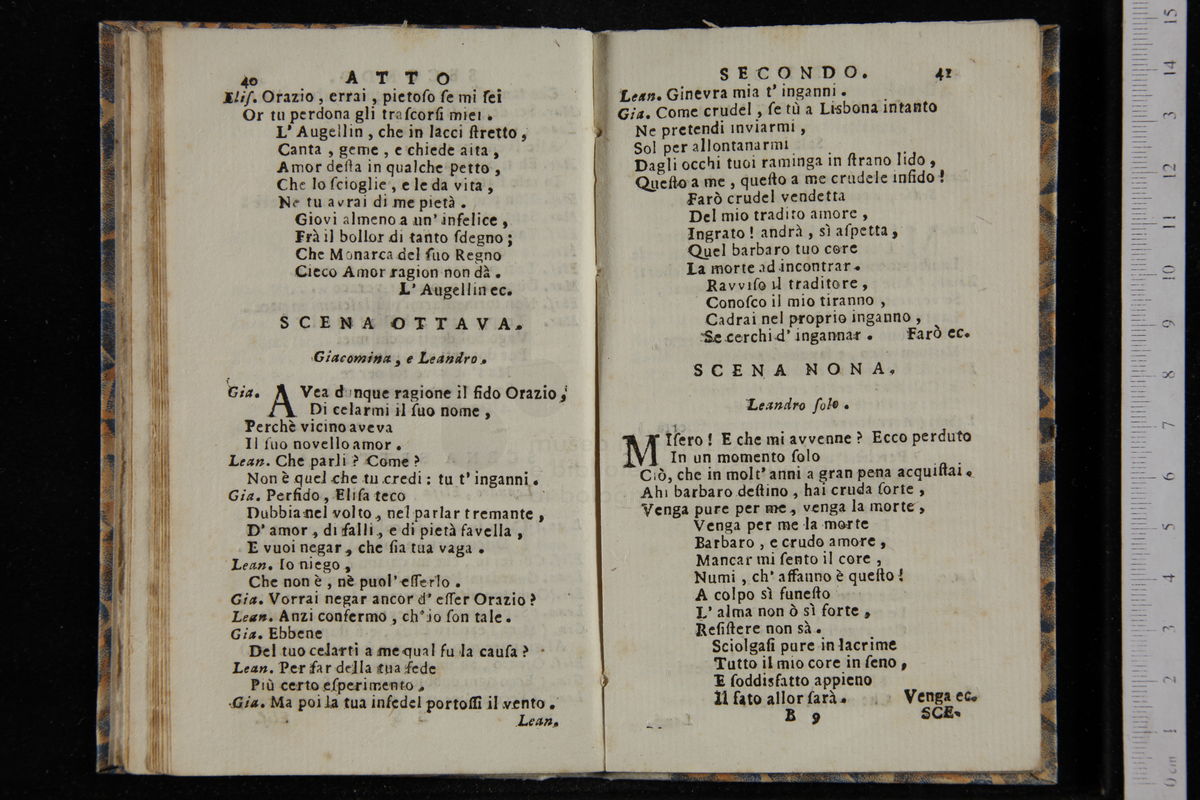 40 ATTO
Eliſ. Orazio, errai, pietoſo ſe mi ſei
Or tu perdona gli traſcorſi miei.
L' Augellin, che in lacci ſtretto,
Canta, geme, e chiede aita,
Amor deſta in qualche petto,
Che lo ſcioglie, e le da vita,
Ne tu avrai di me pietà.
Giovi almeno a un' infelice,
Frà il bollor di tanto ſdegno;
Che Monarca del ſuo Regno
Cieco Amor ragion non dà.
L' Augellin ec.
SCENA OTTAVA.
Giacomina, e Leandro.
Gia. AVea dunque ragione il fido Orazio,
Di celarmi il ſuo nome,
Perchè vicino aveva
Il ſuo novello amor.
Lean. Che parli? Come?
Non è quel che tu credi: tu t' inganni.
Gia. Perfido, Eliſa teco
Dubbia nel volto, nel parlar tremante,
D' amor, di falli, e di pietà favella,
E vuoi negar, che ſia tua vaga.
Lean. Io niego,
Che non è, nè puol' eſſerlo.
Gia. Vorrai negar ancor d' eſſer Orazio?
Lean. Anzi confermo, ch' io ſon tale.
Gia. Ebbene
Del tuo celarti a me qual fu la cauſa?
Lean. Per far della tua fede
Più certo eſperimento.
Gia. Ma poi la tua infedel portoſſi il vento.
Lean.
SECONDO. 41
Lean. Ginevra mia t' inganni.
Gia. Come crudel, ſe tù a Lisbona intanto
Ne pretendi inviarmi,
Sol per allontanarmi
Dagli occhi tuoi raminga in ſtrano lido,
Queſto a me, queſto a me crudele infido!
Farò crudel vendetta
Del mio tradito amore,
Ingrato! andrà, sì aſpetta,
Quel barbaro tuo core
La morte ad incontrar.
Ravviſo il traditore,
Conoſco il mio tiranno,
Cadrai nel proprio inganno,
Se cerchi d' ingannar. Farò ec.
SCENA NONA.
Leandro ſolo.
MIſero! E che mi avvenne? Ecco perduto
In un momento ſolo
Ciò, che in molt' anni a gran pena acquiſtai.
Ahi barbaro deſtino, hai cruda ſorte,
Venga pure per me, venga la morte,
Venga per me la morte
Barbaro, e crudo amore,
Mancar mi ſento il core,
Numi, ch' affanno è queſto!
A colpo sì funeſto
L' alma non ò sì forte,
Reſiſtere non sà.
Sciolgaſi pure in lacrime
Tutto il mio core in ſeno,
E ſoddisfatto appieno
Il fato allor ſarà. Venga ec.
B 9 SCE-